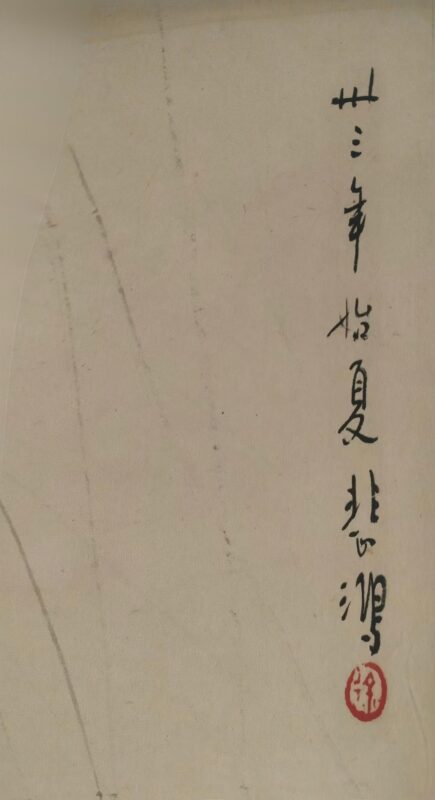 卅三年始夏悲鸿
徐